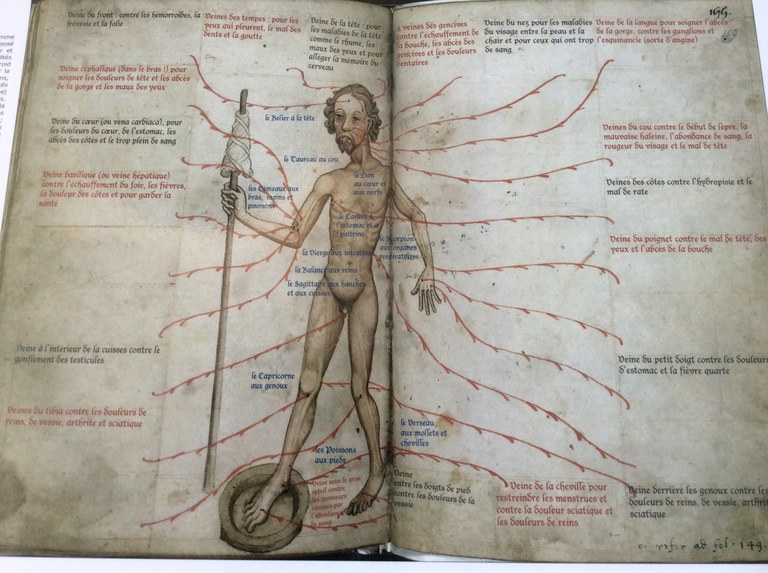 Veine du front : contre les hémorroïdes, la
frénésie et la folie
Veines des tempes : pour les
yeux qui pleurent, le mal des
dents et la goutte
Veine de la tête : pour
les maladies de la tête
comme le rhume, les
maux des yeux et pour
alléger la mémoire du
cerveau
4 veines des gencives
contre l'échauffement de
la bouche, les abcès des
gencives et les douleurs
dentaires
Veine du nez pour les maladies
du visage entre la peau et la
chair et pour ceux qui ont trop
de sang
Veine de la langue pour soigner l'abcès
de la gorge, contre les ganglions et
l'esquinancie (sorte d'angine)
199.
Veine céphalique (dans le bras !) pour
soigner les douleurs de tête et les abcès
de la gorge et les maux des yeux
Veine du cœur (ou vena cardiaca), pour
les douleurs du cœur, de l'estomac, les
abcès des côtes et le trop plein de sang
Veine basilique (ou veine hépatique)
contre l'échauffement du foie, les fièvres,
la douleur des côtes et pour garder la
santé
le Bélier à la tête
le Taureau au cou
les Gémeaux aux
bras, mains et
poumons
le Lion
au cœur et
aux nerfs
le Cancer à
l'estomac et à
la poitrine
le Scorpion
aux organes
respiratoires
la Vierge aux intestins
la Balance aux reins
le Sagittaire aux hanches
et aux cuisses
Veines du cou contre le début de lèpre, la
mauvaise haleine, l'abondance de sang, la
rougeur du visage et le mal de tête
Veines des côtes contre l'hydropisie et le
mal de rate
Veine du poignet contre le mal de tête, des
yeux et l'abcès de la bouche
Veine à l'intérieur de la cuisses contre le
gonflement des testicules
Veine du petit doigt contre les douleurs
d'estomac et la fièvre quarte
le Capricorne
aux genoux
Veines du tibia contre les douleurs de
reins, de vessie, arthrite et sciatique
le Verseau
aux mollets et
chevilles
les Poissons
aux pieds
Veine sous le gros
orteil contre
les
causées par
l'abondance
de sang
Veine
entre les doigts de pied
contre les douleurs de la
vessie
Veine de la cheville pour
restreindre les menstrues et
contre la douleur sciatique et
les douleurs de reins
Veine derrière les genoux contre les
douleurs de reins, de vessie, arthrite
sciatique